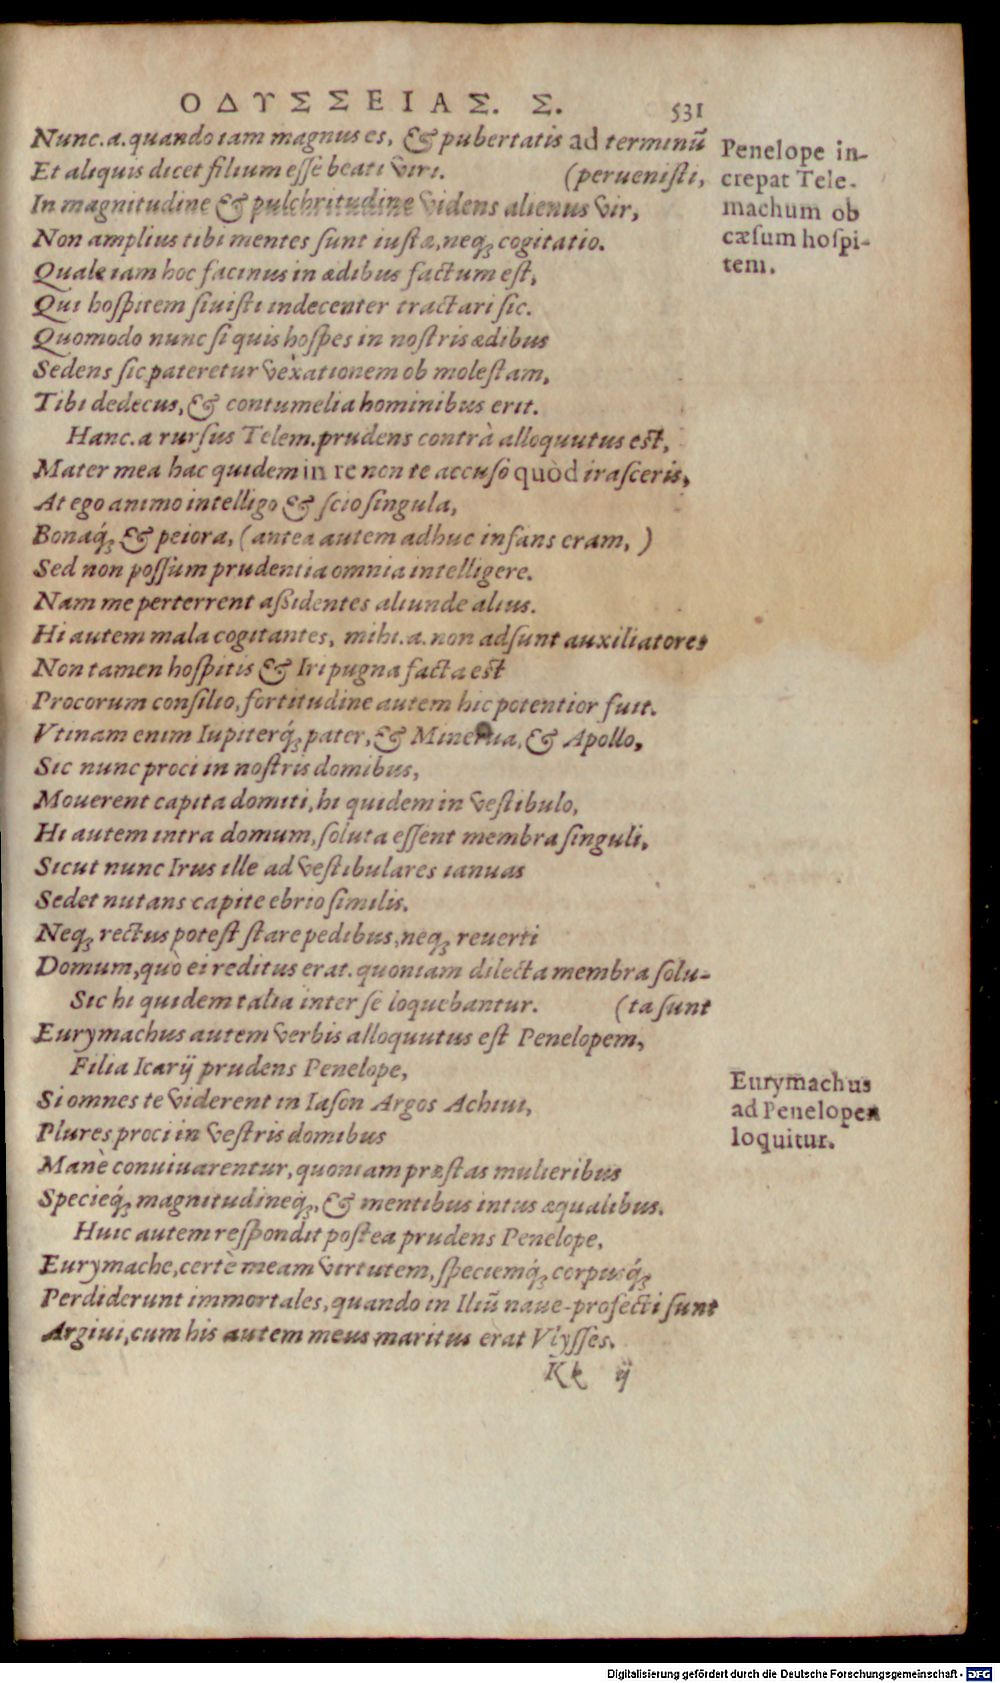 ΟΔΥΣΣΕΙΑΣ. Σ. 531
Nunc.a.quando iam magnus es, & pubertatis ad terminū
Et aliquis dicet filium esse beati viri. (peruenisti,
In magnitudine & pulchritudine videns alienus vir,
Non amplius tibi mentes sunt iustæ,neqꝫ cogitatio.
Quale iam hoc facinus in ædibus factum est,
Qui hospitem siuisti indecenter tractari sic.
Quomodo nunc si quis hospes in nostris ædibus
Sedens sic pateretur vexationem ob molestam,
Tibi dedecus, & contumelia hominibus erit.
Hanc.a rursus Telem.prudens contrà alloquutus est,
Mater mea hac quidem in re non te accuso quòd irasceris,
At ego animo intelligo & scio singula,
Bonaq́ꝫ & peiora, (antea autem adhuc infans eram, )
Sed non possum prudentia omnia intelligere.
Nam me perterrent aßidentes aliunde alius.
Hi autem mala cogitantes, mihi.a.non adsunt auxiliatores
Non tamen hospitis & Iri pugna facta est
Procorum consilio,fortitudine autem hic potentior fuit.
Vtinam enim Iupiterq́ꝫ pater,& Minerua,& Apollo,
Sic nunc proci in nostris domibus,
Mouerent capita domiti,hi quidem in vestibulo,
Hi autem intra domum,soluta essent membra singuli,
Sicut nunc Irus ille ad vestibulares ianuas
Sedet nutans capite ebrio similis.
Neqꝫ rectus potest stare pedibus,neqꝫ reuerti
Domum,quò ei reditus erat.quoniam dilecta membra solu-
Sic hi quidem talia inter se loquebantur. (ta sunt
Eurymachus autem verbis alloquutus est Penelopem,
Filia Icarij prudens Penelope,
Si omnes te viderent in Iason Argos Achiui,
Plures proci in vestris domibus
Manè conuiuarentur,quoniam præstas mulieribus
Specieq́ꝫ magnitudineq́ꝫ,& mentibus intus æqualibus.
Huic autem respondit postea prudens Penelope,
Eurymache,certè meam virtutem,speciemq́ꝫ corpusq́ꝫ
Perdiderunt immortales,quando in Iliū naue-profecti sunt
Argiui,cum his autem meus maritus erat Vlysses.
Kk ij
Penelope in-
crepat Tele-
machum ob
cæsum hospi-
tem.
Eurymachus
ad Penelopen
loquitur.
Digitalisierung gefördert durch die Deutsche Forschungsgemeinschaft - DFG